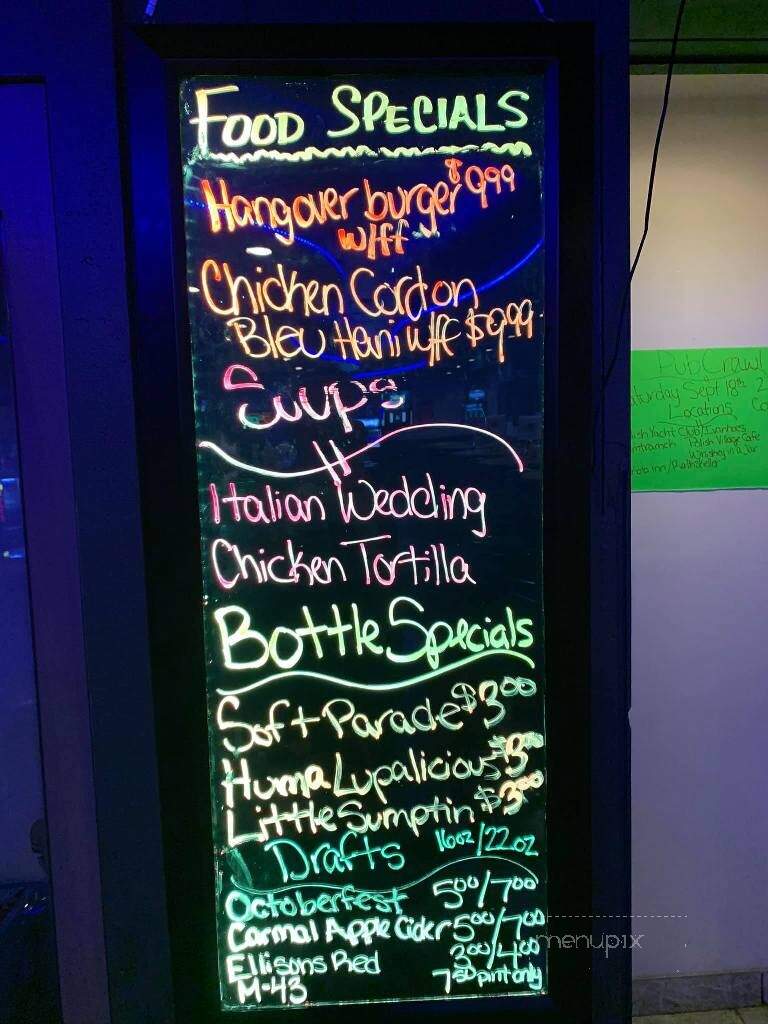 FOOD SPECIALS
Hangover burger $9.99
w/ff
Chicken Cordon
Bleu Hani w/ff $9.99
Soups
Italian Wedding
Chicken Tortilla
Bottle Specials
Soft Parade $3.00
Huma Lupalicious $3.00
Little Sumptin $3.00
Drafts 16oz/22oz
Octoberfest 5.00/7.00
Carmal Apple Cider 5.00/7.00
Ellisons Red 3.00/4.00
M-43 7.50 pint only
Pub Crawl
aturday Sept 18th 2
Locations
ish Yacht Club/Ivanhoes
mtramck Polish Village Cafe
Whiskey in a Jar
menupix